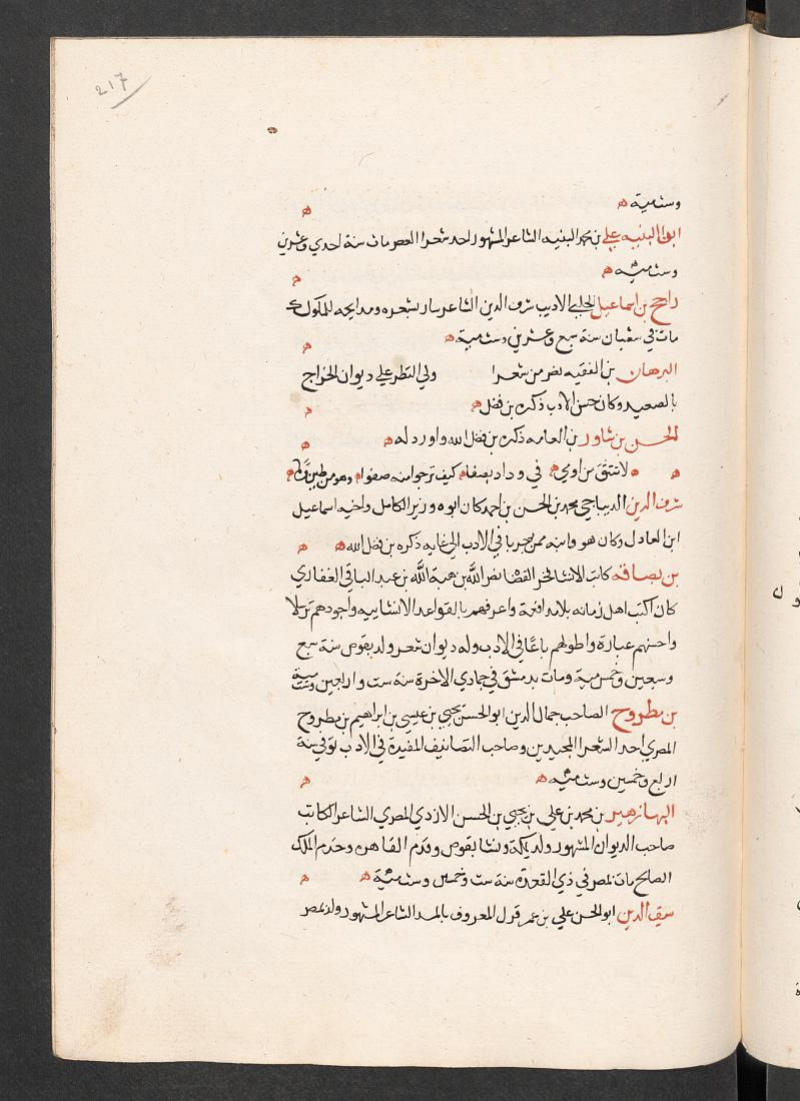 217
وستمية ه ه
ابن النبيه علي بن محمد النبيه الشاعر المشهور احد شعرا العصر مات سنة احدي وعشرين
وستمئه ه ه
راجح بن اسماعيل الحلبي الاديب شرف الدين الشاعر سار شعره ومدايحه للملوك
مات في شعبان سنة سبع وعشرين وستمية ه ه
البرهان بن الفقيه نصر من شعرا ولي النظر علي ديوان الخراج
بالصعيد وكان حسن الادب ذكره بن فضل ه ه
الحسن بن شاور بن العامه ذكره بن فضل الله واورد له ه ه
ه ه لا تتق من اوي ه في وداد بصفاه كيف ترجو منه صفوا ه وهو من طين ه
شرف الدين الديباجي محمد بن الحسن بن احمد كان ابوه وزير الكامل واخيه اسماعيل
ابن العادل وكان هو وابنه ممن يجريا في الادب الي غايه ذكره بن فضل الله ه ه
بن بصاقه كاتب الانشا فخر القضا نصر الله بن هبة الله بن عبد الباقي الغفاري
كان اكتب اهل زمانه بلا مدافعة واعرفهم بالقواعد الانشاييه واجودهم ترسلا
واحسنهم عبارة واطولهم باعا في الادب وله ديوان شعر ولد بقوص سنة سبع
وسبعين وخمسمية ومات بدمشق في جمادي الاخرة سنة ست واربعين وستمية
بن مطروح الصاحب جمال الدين ابو الحسن يحيي بن عيسي بن ابراهيم بن مطروح
المصري احد الشعرا المجيدين وصاحب التصانيف المفيدة في الادب توفي سنة
اربع وخمسين وستمئيه ه ه
البها زهير بن محمد بن علي بن يحيي بن الحسن الازدي المصري الشاعر الكاتب
صاحب الديوان المشهور ولد بمكة ونشا بقوص وقدم القاهرة وخدم الملك
الصالح مات بمصر في ذي القعدة سنة ست وخمسين وستمئية ه ه
سيف الدين ابو الحسن علي بن عمر قزل المعروف بالمشد الشاعر المشهور ولد بمصر